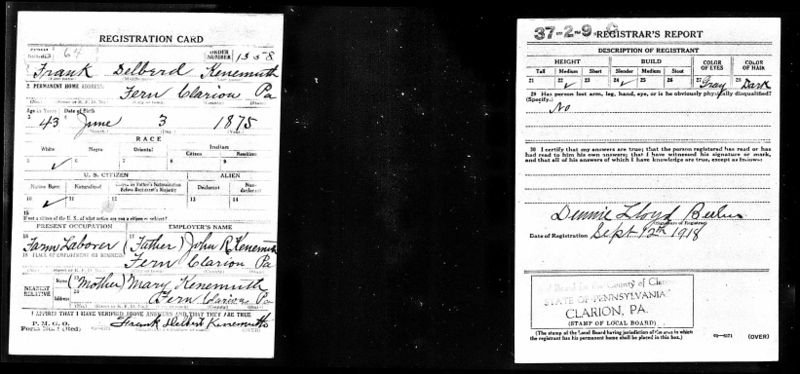 REGISTRATION CARD
SERIAL NUMBER 64
ORDER NUMBER 1358
Frank Delberd Kenemuth
2 PERMANENT HOME ADDRESS:
Fern Clarion Pa
Age in Years Date of Birth
43 June 3 1875
RACE
White Negro Oriental Indian
Citizen
U. S. CITIZEN ALIEN
Native Born Naturalized Declarant
10 11 12 13 14
15
If not a citizen of the U. S., of what nation are you a citizen or subject?
PRESENT OCCUPATION EMPLOYER'S NAME
Farm Laborer (Father) John R. Kenemuth
18 PLACE OF EMPLOYMENT OR BUSINESS:
Fern Clarion Pa
NEAREST RELATIVE Name (Mother) Mary Kenemuth
Address Fern Clarion Pa
I AFFIRM THAT I HAVE VERIFIED ABOVE ANSWERS AND THAT THEY ARE TRUE
P. M. G. O.
Form No. 1 (Red) Frank Delbert Kenemuth
37-2-9 C REGISTRAR'S REPORT
DESCRIPTION OF REGISTRANT
HEIGHT BUILD COLOR OF EYES COLOR OF HAIR
Tall Medium Short Slender Medium Stout
21 22 23 24 25 26 27 Gray 28 Dark
29 Has person lost arm, leg, hand, eye, or is he obviously physically disqualified?
(Specify.) No
30 I certify that my answers are true; that the person registered has read or has
had read to him his own answers; that I have witnessed his signature or mark,
and that all of his answers of which I have knowledge are true, except as follows:
Lloyd
Date of Registration Sept 12th 1918
STATE OF PENNSYLVANIA
CLARION, PA.
(STAMP OF LOCAL BOARD)
(The stamp of the Local Board having jurisdiction of the area in which
the registrant has his permanent home shall be placed in this box.)
(OVER)